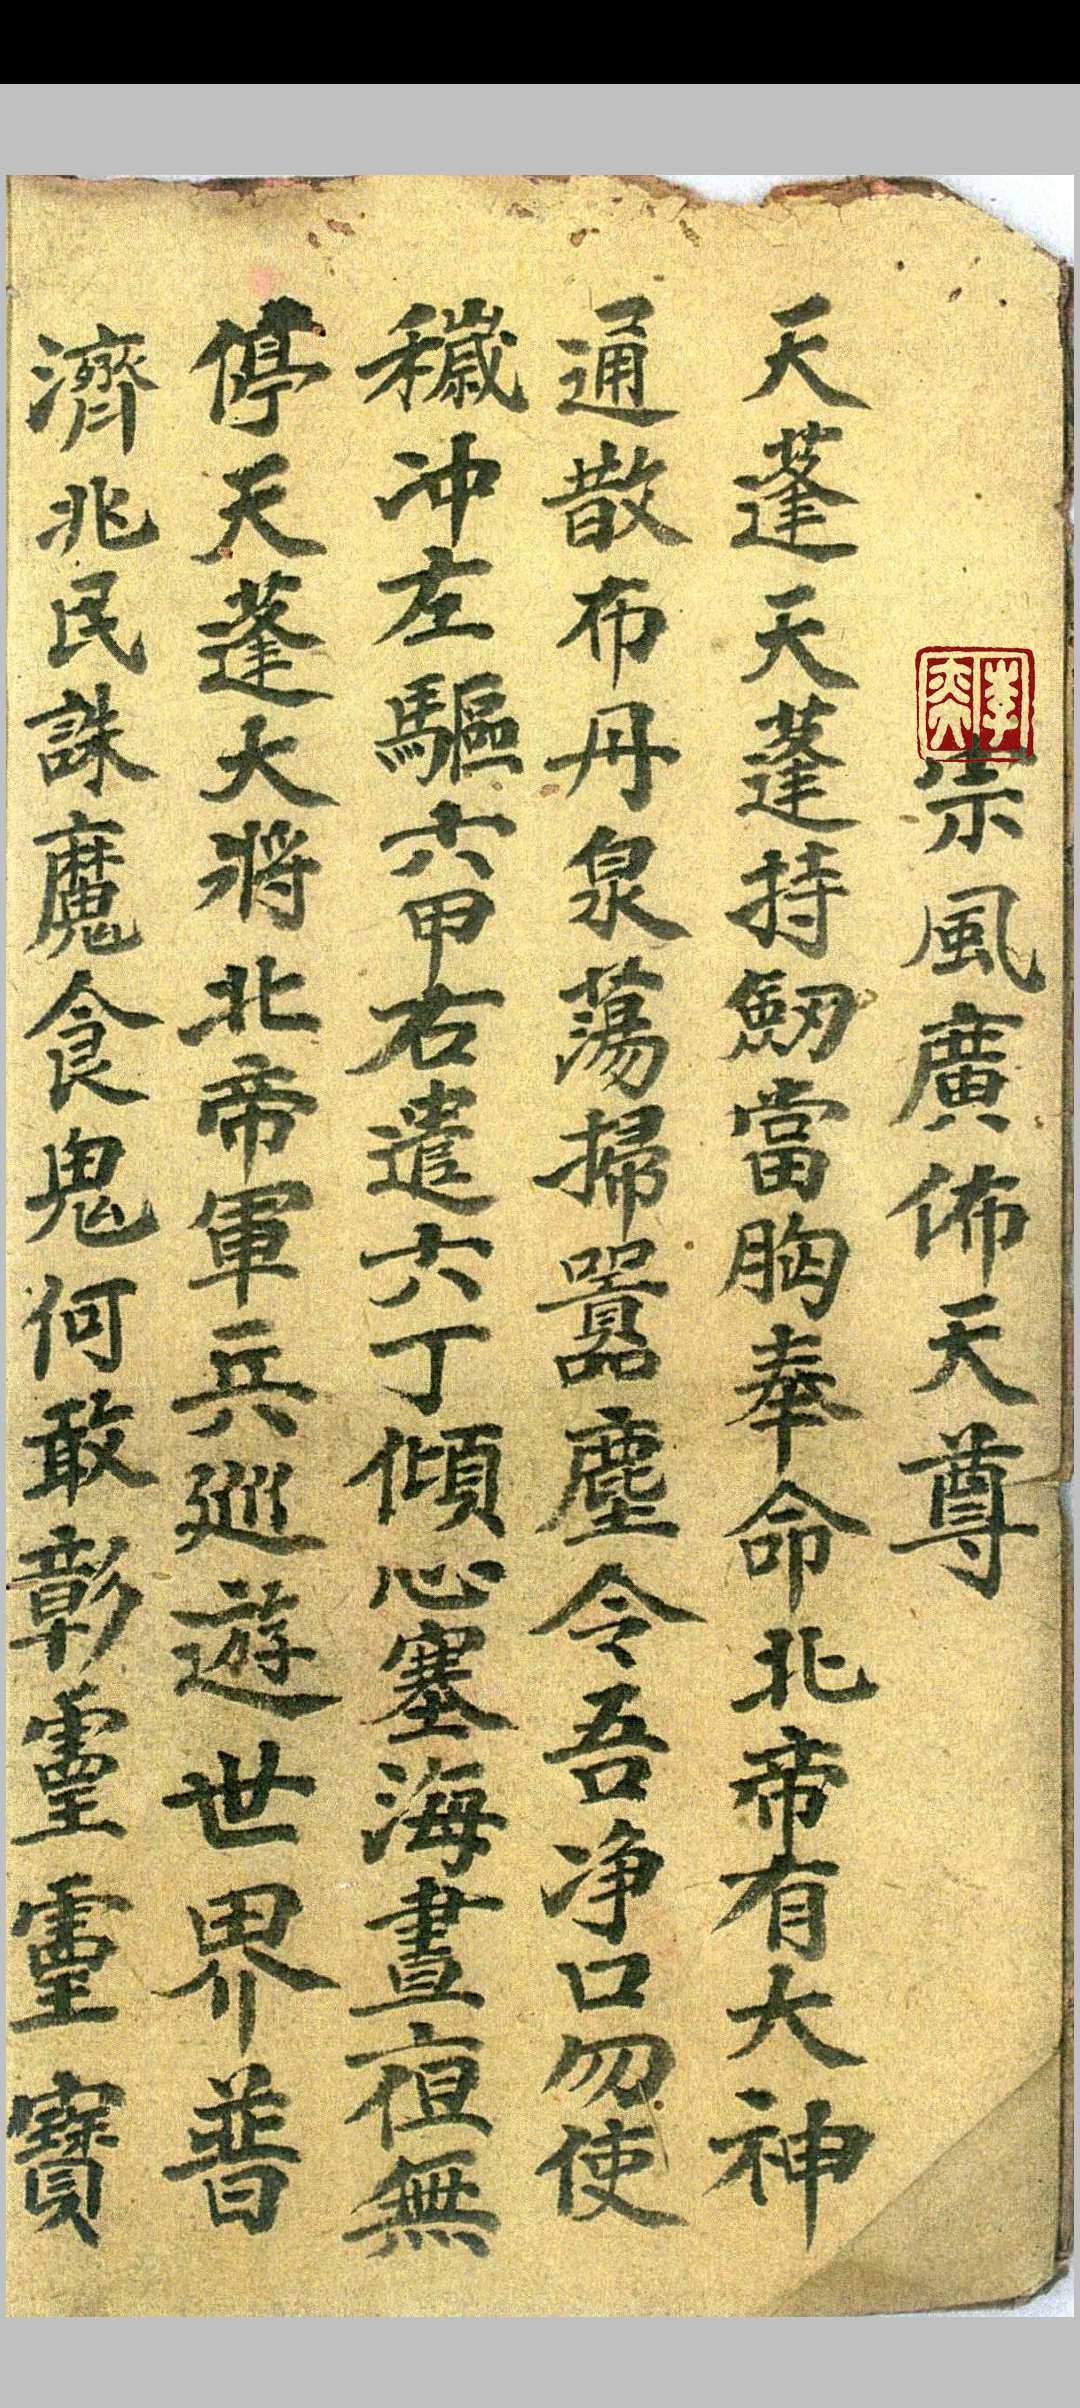 崇風廣佈天尊
天蓬天蓬持劒當胸奉命北帝有大神
通散布丹泉蕩掃嚣塵令吾净口勿使
穢冲左驅六甲右遣六丁傾心塞海晝夜無
停天蓬大將北帝軍兵巡遊世界普
濟兆民誅魔食鬼何敢彰靈靈寶